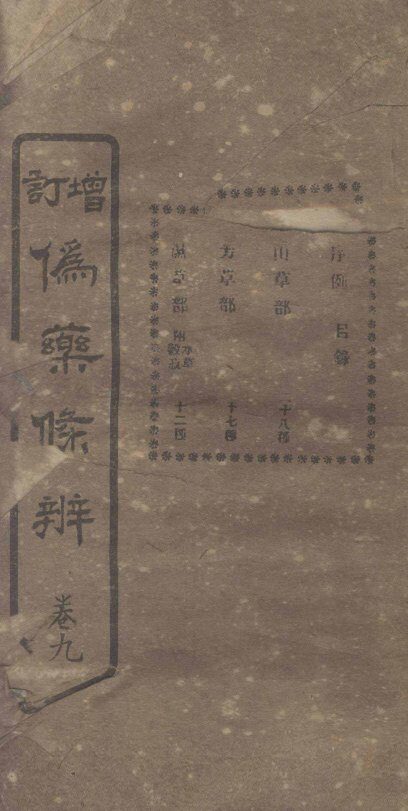 增訂偽藥條辨 卷九
序例 目錄
山草部 十八種
芳草部 十七種
草部 附 水草 十二種